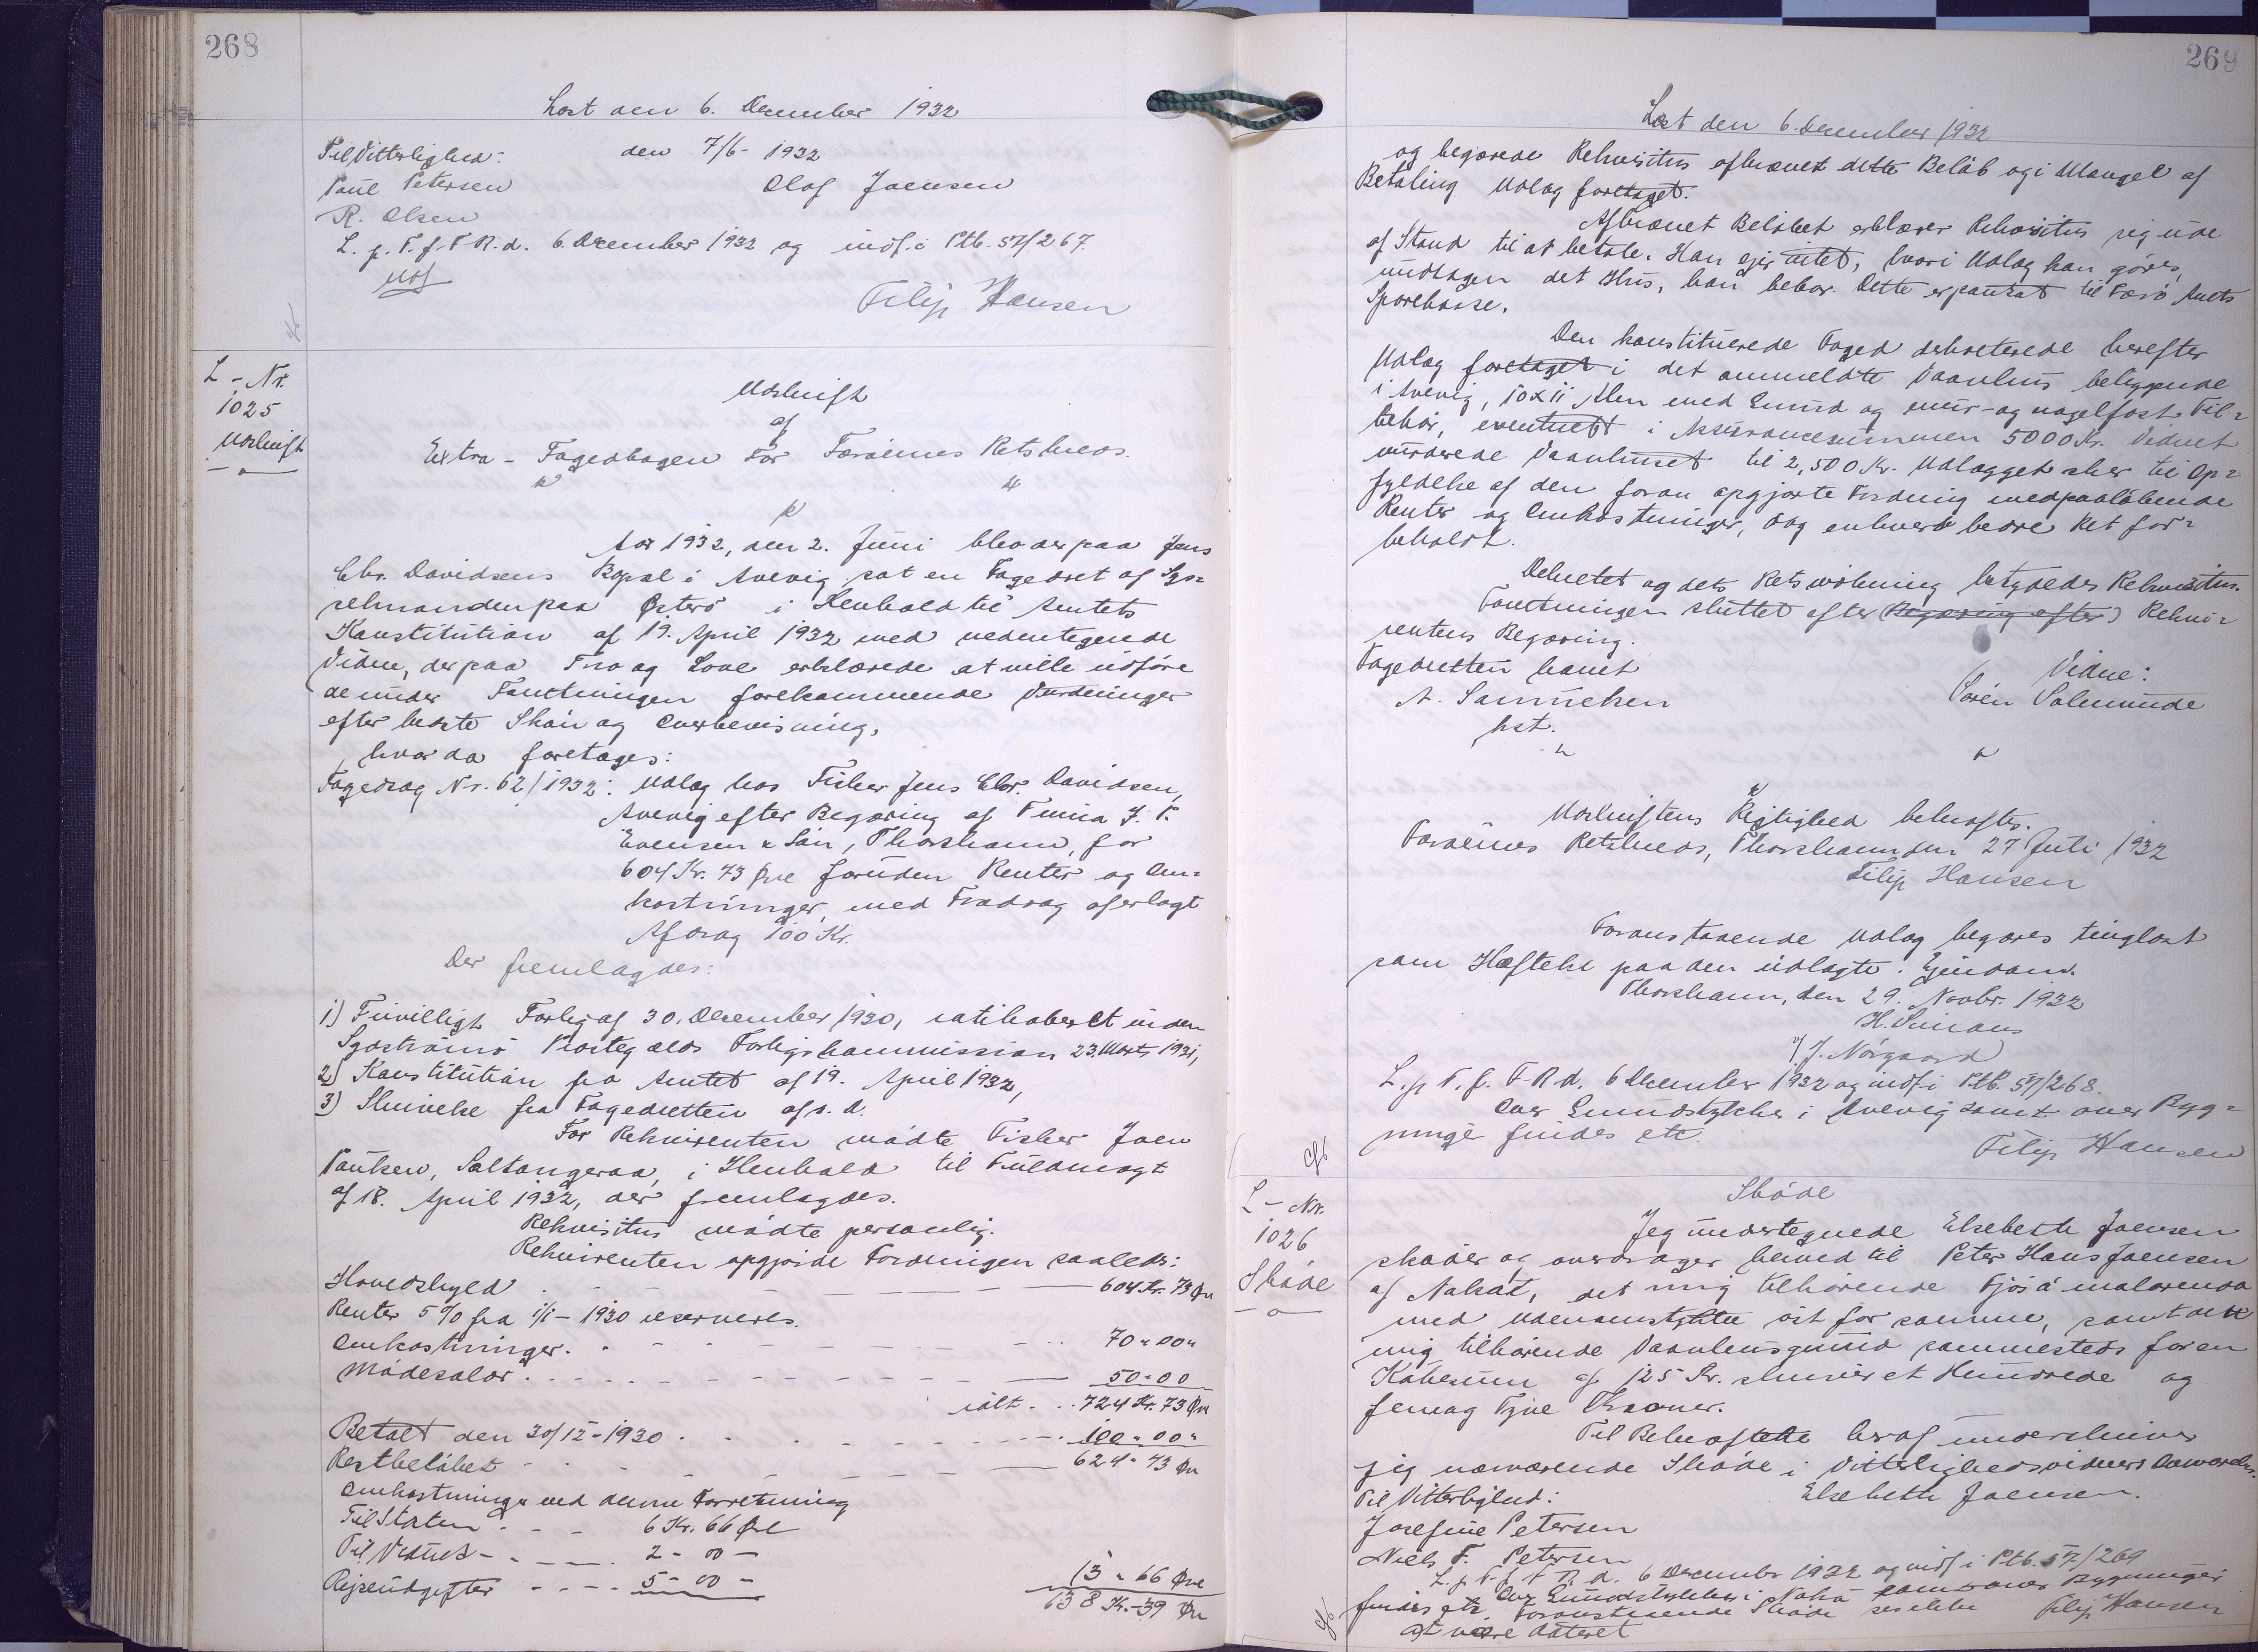 268
Læst den 6. December 1932
Til Vitterlighed: den 7/6 - 1932
Poul Petersen Olaf Joensen
R. Olsen
L. p. T. f. F. R. d. 6. December 1932 og indf. i Ptb. 57/267.
Filip Hansen
L - Nr.
1025
Udskrift
Udskrift
af
Extra - Fogedbogen for Færøernes Retskreds.
Aar 1932, den 2. Juni blev der paa Jens
Chr. Davidsens Bopæl i Avevig sat en Fogedret af Sys=
selmanden paa Østerø i Henhold til Amtets
Konstitution af 19. April 1932 med nedentegnede
Vidne, der paa Tro og Love erklærede at ville udføre
de under Forretningen forekommende Vurderinger
efter bedste Skøn og Overbevisning,
hvor da foretoges:
Fogedsag Nr. 62/1932: Udlæg hos Fisker Jens Chr. Davidsen,
Avevig efter Begæring af Firma J. F.
Evensen & Søn, Thorshavn, for
604 Kr. 73 Øre foruden Renter og Om=
kostninger, med Fradrag af erlagt
Afdrag 100 Kr.
Der fremlagdes:
1) Frivilligt Forlig af 30. December 1930, ratihaberet inden
Sydstrømø Præstegælds Forligskommission 23. Marts 1931,
2) Konstitution fra Amtet af 19. April 1932,
3) Skrivelse fra Fogedretten af s. d.
For Rekvirenten mødte Fisker Joen
Poulsen, Saltangeraa, i Henhold til Fuldmagt
af 18. April 1932, der fremlagdes.
Rekvisitus mødte personlig.
Rekvirenten opgjorde Fordringen saaledes:
Hovedskyld 604 Kr. 73 Øre
Renter 5% fra 1/1 - 1930 reserveres.
Omkostninger 70 " 00 "
Mødesalær 50 " 00
ialt 724 Kr. 73 Øre
Betalt den 30/12 - 1930 100 " 00 "
Restbeløbet 624 " 73 Øre
Omkostninger ved denne Forretning
Til Staten 6 Kr. 66 Øre
Til Vidnet 2 - 00 -
Rejseudgifter 5 - 00 - 13 " 66 Øre
638 Kr. 39 Øre
269
Læst den 6. December 1932
og begærede Rekvisitus afkrævet dette Beløb og i Mangel af
Betaling Udlæg foretaget.
Afkrævet Beløbet erklærer Rekvisitus sig ude
af Stand til at betale. Han ejer intet, hvori Udlæg kan gøres,
undtagen det Hus, han bebor. Dette er pantsat til Færø Amts
Sparekasse.
Den konstituerede Foged dekreterede herefter
Udlæg foretaget i det anmeldte Vaanhus beliggende
i Avevig, 10 x 11 Alen med Grund og mur- og nagelfast Til=
behør, eventuelt i Assurancesummen 5000 Kr. Vidnet
vurderede Vaanhuset til 2,500 Kr. Udlægget sker til Op=
fyldelse af den foran opgjorte Fordring med paaløbende
Renter og Omkostninger, dog enhver bedre Ret for=
beholdt.
Dekretet og dets Retsvirkning betydedes Rekvisitus.
Forretningen sluttet efter (Begæring efter) Rekvi=
rentens Begæring.
Fogedretten hævet
Vidne:
A. Samuelsen Sørén Solmunde
kst.
Udskriftens Rigtighed bekræftes.
Færøernes Retskreds, Thorshavn den 27 Juli 1932
Filip Hansen
Foranstaaende Udlæg begæres tinglæst
som Hæftelse paa den udlagte Ejendom.
Thorshavn, den 29. Novbr. 1932
H. Simons
v/ J. Nørgaard
L. p. T. f. F. R. d. 6 December 1932 og indf. i Ptb. 57/268.
Over Grundstykker i Avevig samt over Byg=
ninger findes etc.
Filip Hansen
L - Nr.
1026
Skøde
Skøde
Jeg undertegnede Elsebeth Joensen
skøder og overdrager herved til Peter Hans Joensen
af Nalsøt, det mig tilhørende
med øst for samme, samt det
mig tilhørende Vaanhusgrund sammesteds for en
Købesum af 125 Kr. skriver et Hundrede og
fem og Tyve Kroner.
Til Bekræftelse heraf underskriver
jeg nærværende Skøde i Vitterlighedsvidners Overværelse.
Til Vitterlighed: Elsebeth Joensen.
Josefine Petersen
Niels F. Petersen
L. p. T. f. F. R. d. 6 December 1932 og indf. i Ptb. 57/269
Over Grundstykker i samt over Bygninger
findes etc. Foranstaaende Skøde ses ikke Filip Hansen
at være dateret